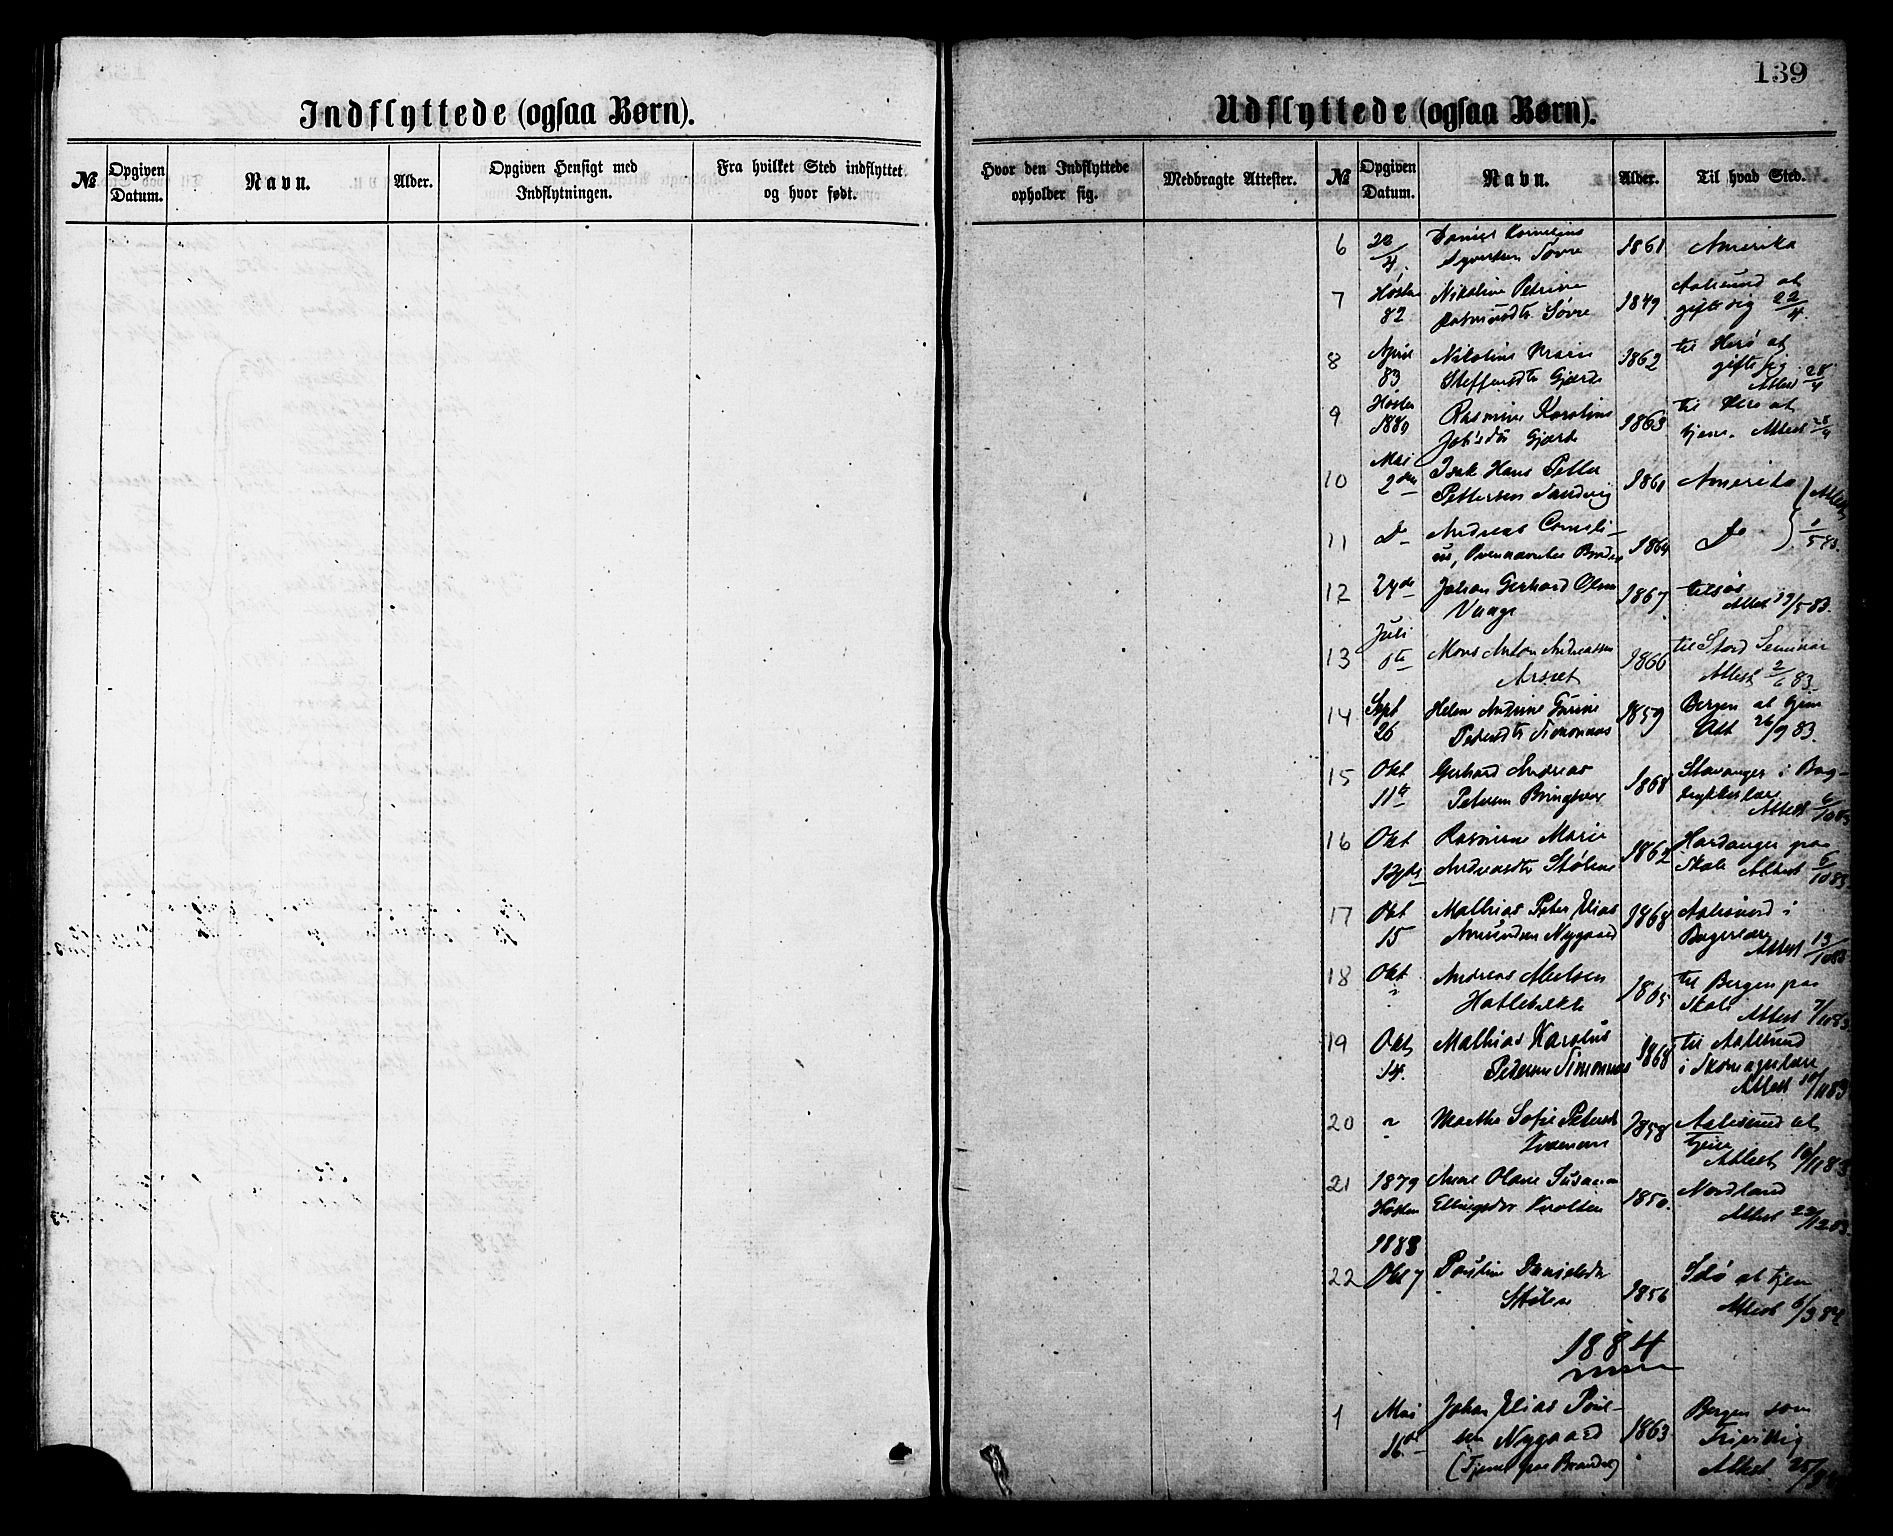 139
Indflyttede (ogsaa Børn).
Udflyttede (ogsaa Børn).
№ Opgiven Datum. Navn. Alder. Opgiven Hensigt med Indflytningen. Fra hvilket Sted indflyttet og hvor født.
Hvor den Indflyttede opholder sig. Medbragte Attester. № Opgiven Datum. Navn. Alder. Til hvad Sted.
6 Daniel Kornelius 1861 Amerika
Syvertsen Sovre
7 Høsten Nikoline Petrine 1849 Aalesund at
82 Rasmusdtr Sovre gifte sig 22/4
8 April Nikoline Marie 1862 til Herø at
83 Steffensdtr Gjerde gifte sig
Attest 28/4
9 Høsten Rasmine Karoline 1863 til Herø at
Gjerde tjene. Attest 28/4
10 Mai Isak Hans Petter 1861 Amerika
2den Pettersen Sandvig Attest
11 Do Andreas Corneli- 1864 Do
us, Ovennævntes Broder
12 24de Johan Gerhard Olsen 1867 tilsøs
Vaage Attest 19/5 83.
13 Juli Mons Anton Andreassen 1866 til Stord Seminar
Aarset Attest 2/6 83
14 Sept Helene Andrine Gurine 1859 Bergen at tjene
26 Petersdtr Simonnes Att 26/9 83.
15 Okt Gerhard Andreas 1868 Stavanger i Bog-
11te Petersen Bringsvor trykkerlære
Attest 6/10 83
16 Okt Rasmine Marie 1862 Hardanger paa
Andreasdtr Stølene Skole Attest 6/10 83.
17 Okt Mathias Peter Elias 1868 Aalesund i
15 Amundsen Nygaard Bagerlære
Attest 13/10 83
18 Okt Andreas Nielsen 1865 til Bergen paa
" Hatlebrekke Skole
Attest 7/10 83.
19 Okt Mathias Karolus 1868 til Aalesund
14. Petersen Simonnes i Skomagerlære
Attest 10/11 83
20 " Marthe Sofie Petersdtr 1858 Aalesund at
tjene
Attest 10/11 83
21 1879 Anne Oline Susanna 1850. Nordland
Høsten Ellingsdtr Attest 22/12 83.
1883
22 Okt 7 Danielsdtr 1856 at tjene
Støline Attest 6/3 84
1884
1 Mai Johan Elias Poul- 1863 Bergen som
16de sen Nygaard Frivillig
(Tjener paa Brandal) Attest